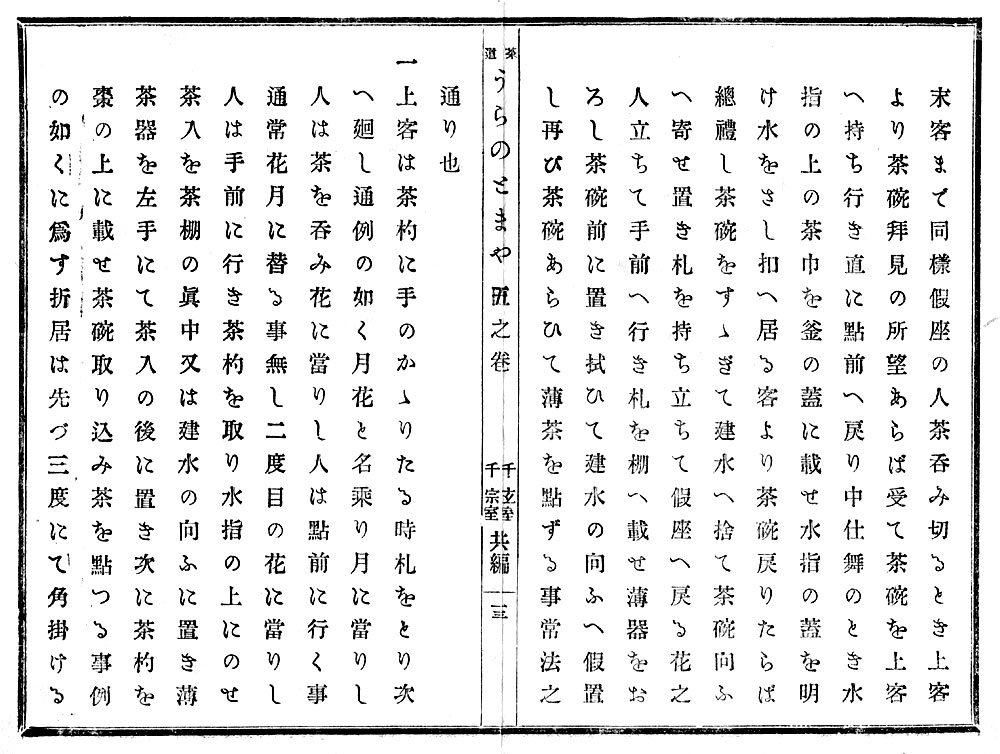 末客まで同樣假座の人茶呑み切るとき上客
より茶碗拜見の所望あらば受て茶碗を上客
へ持ち行き直に點前へ戻り中仕舞のとき水
指の上の茶巾を釜の蓋に載せ水指の蓋を明
け水をさし扣へ居る客より茶碗戻りたらば
總禮し茶碗をすゝぎて建水へ捨て茶碗向ふ
へ寄せ置き札を持ち立ちて假座へ戻る花之
人立ちて手前へ行き札を棚へ載せ薄器をお
ろし茶碗前に置き拭ひて建水の向ふへ假置
し再び茶碗あらひて薄茶を點ずる事常法之
茶道 うらのとまや 五之卷 千玄室 千宗室 共編 三
通り也
一上客は茶杓に手のかゝりたる時札をとり次
へ廻し通例の如く月花と名乘り月に當りし
人は茶を呑み花に當りし人は點前に行く事
通常花月に替る事無し二度目の花に當りし
人は手前に行き茶杓を取り水指の上にのせ
茶入を茶棚の眞中又は建水の向ふに置き薄
茶器を左手にて茶入の後に置き次に茶杓を
棗の上に載せ茶碗取り込み茶を點つる事例
の如くに爲す折居は先づ三度にて角掛ける